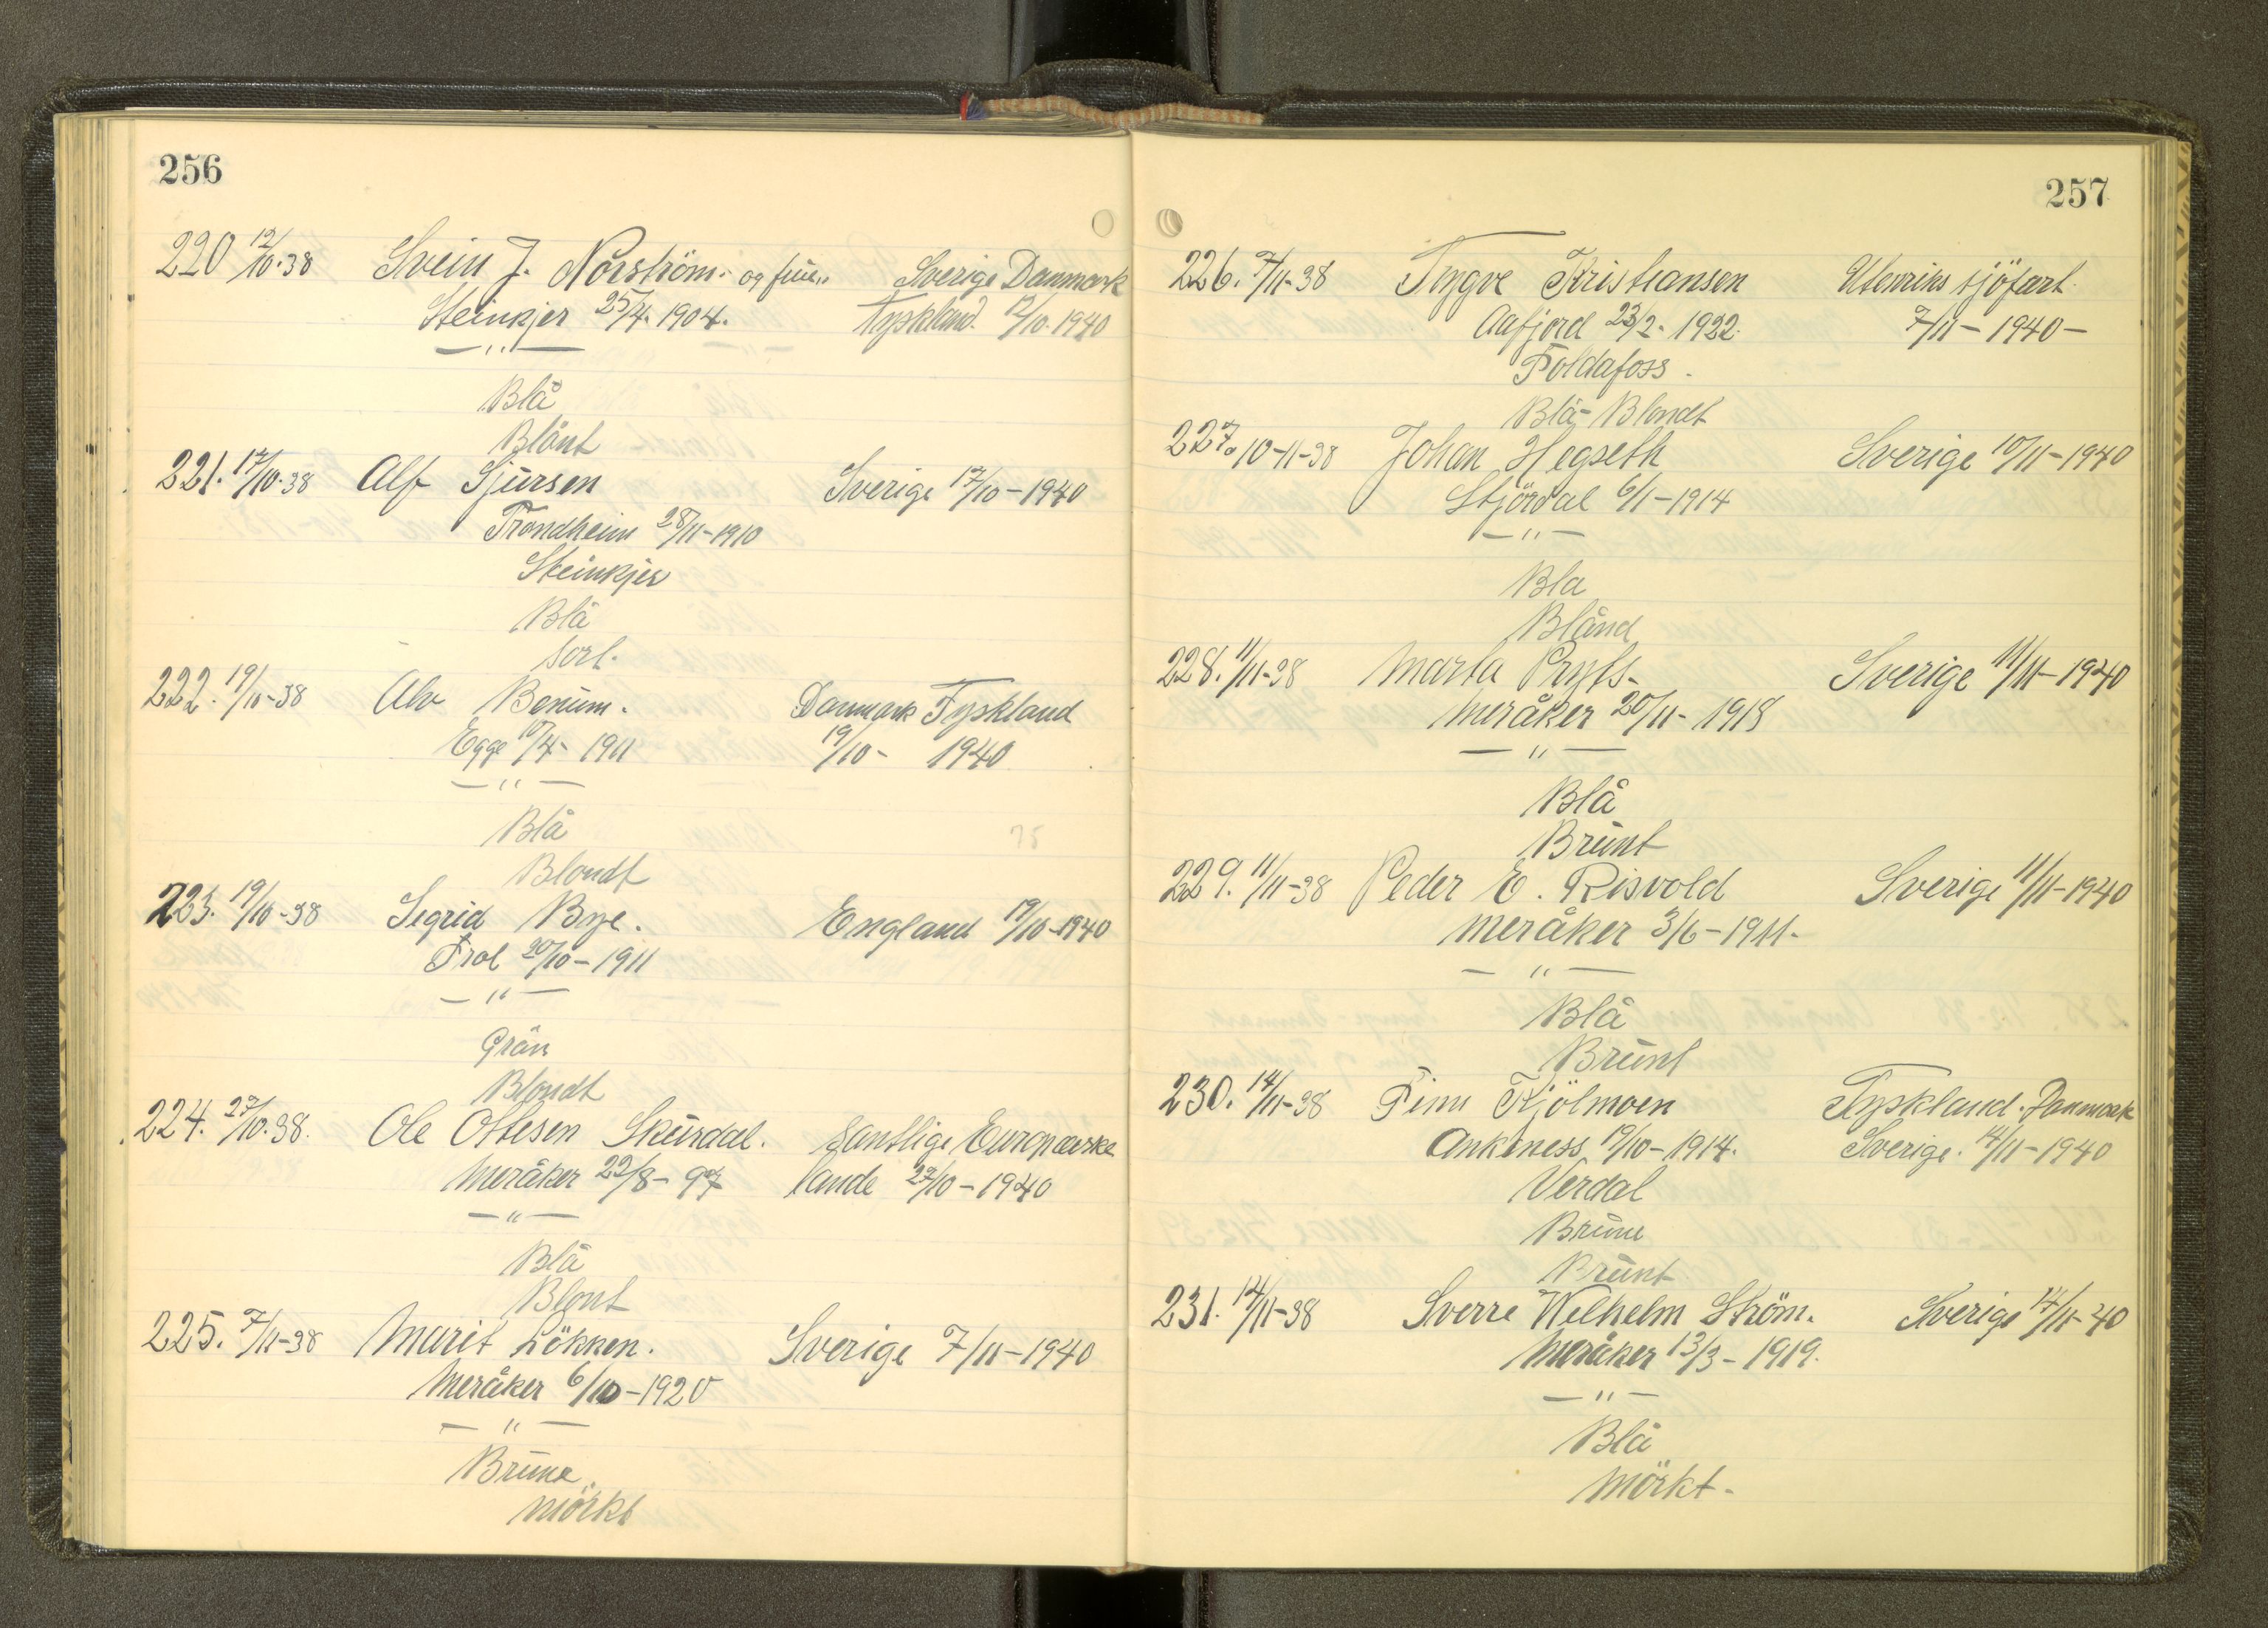 256
220 12/10-38 Svein J. Norström. og frue. Sverige Danmark
Steinkjer 25/4. 1904. Tyskland. 12/10. 1940
— " —
Blå
Blånt
221. 17/10-38 Alf Sjursen Sverige 17/10-1940
Trondheim 28/11-1910
Steinkjer
Blå
Sort.
222. 19/10-38 Alv Benum. Danmark Tyskland
Egge 10/4- 1911 19/10- 1940
— " —
Blå
Blondt
223. 19/10-38 Sigrid Bye. England 19/10-1940
Frol 20/10-1911
— " —
Grön
Blondt
224. 27/10.38. Ole Ottesen Skurdal. Samtlige Europæeiske
Meråker 22/8-97 lande 27/10-1940
— " —
Blå
Blont
225. 7/11-38 Marit Lökken. Sverige 7/11-1940
Meråker 6/10-1920
— " —
Brune
mörkt
257
226. 7/11-38 Trygve Kristiansen Utenriks sjöfart.
Aafjord 23/2- 1922. 7/11-1940-
Foldafoss.
Blå-Blondt
227. 10-11-38 Johan Hegseth Sverige 10/11-1940
Stjördal 6/1-1914
— " —
Bla
Blånd
228. 11/11-38 Marta Pryts- Sverige 11/11-1940
Meråker 20/11- 1918
— " —
Blå
Brunt
229. 11/11-38 Peder E. Risvold Sverige 11/11-1940
Meråker 3/6-1911-
— " —
Blå
Brunt
230. 14/11-38 Finn Kjölmoen Tyskland. Danmark
Ankeness 19/10-1914. Sverige. 14/11-1940
Verdal
Brune
Brunt
231. 14/11-38 Sverre Wilhelm Ström. Sverige 14/11-40
Meråker 13/3-1919.
— " —
Blå
Mörkt-